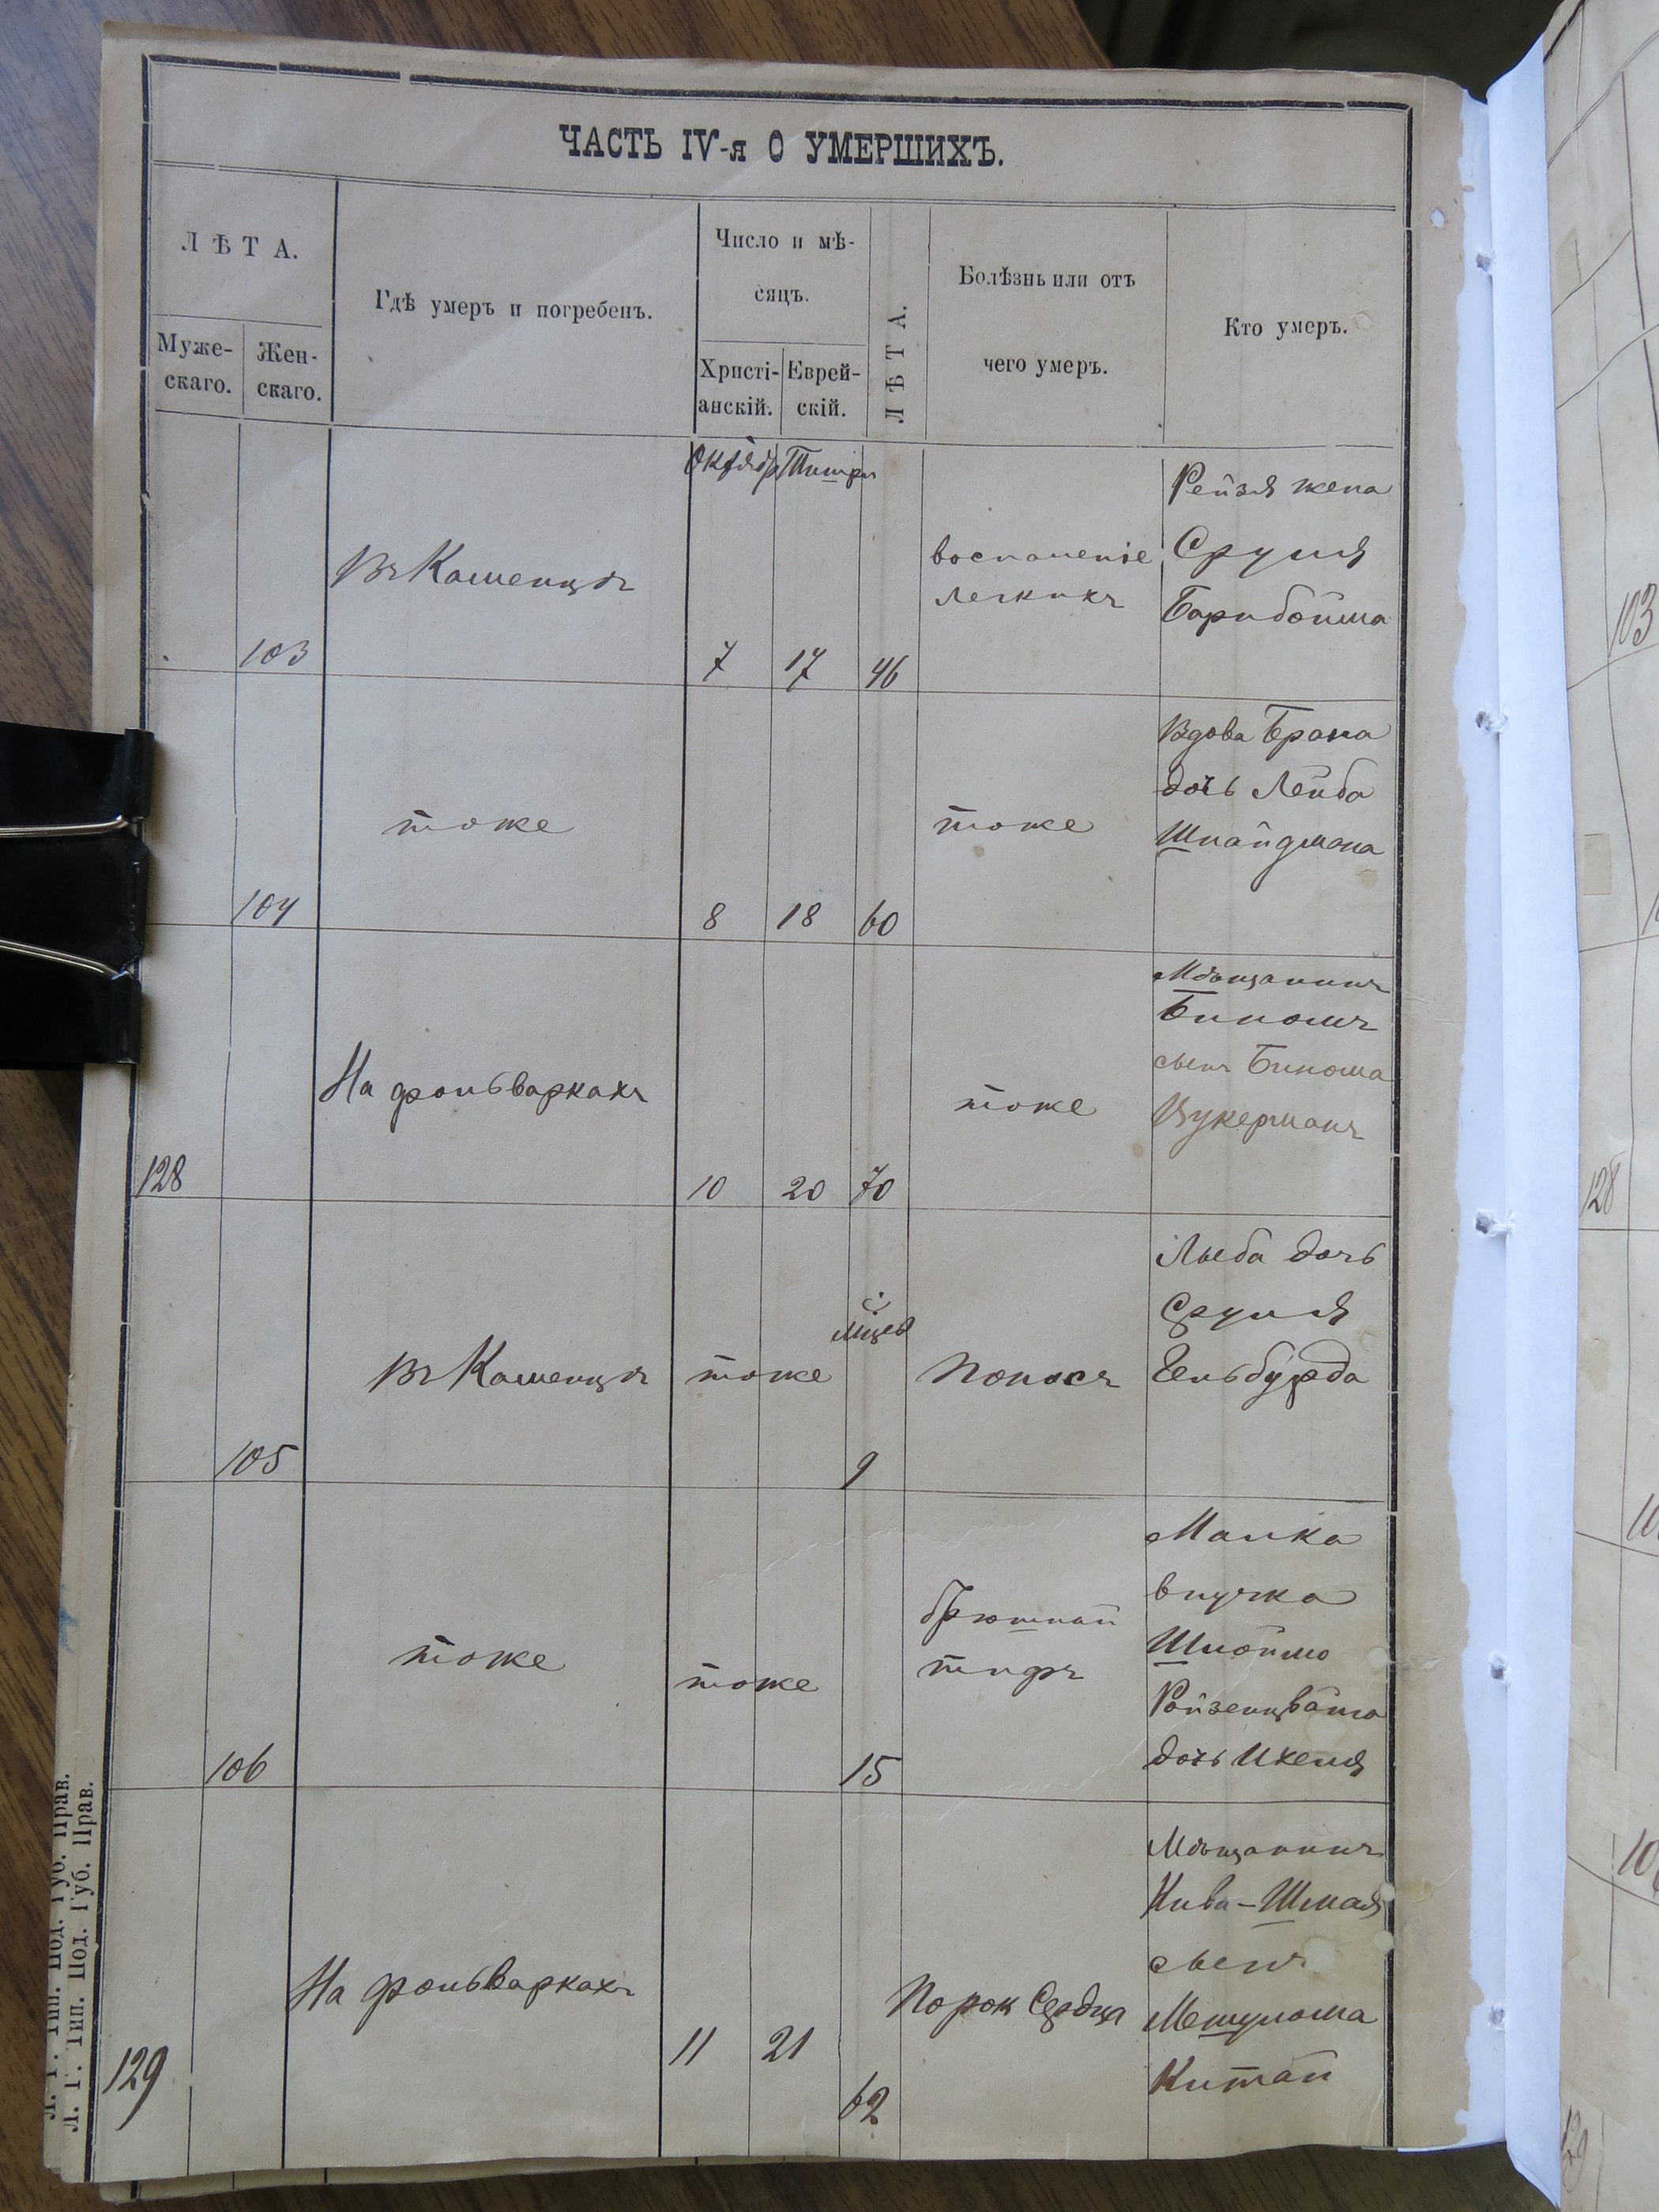 ЧАСТЬ IV-я О УМЕРШИХЪ.
ЛѢТА.
Муже-
скаго.
Жен-
скаго.
Гдѣ умеръ и погребенъ.
Число и мѣ-
сяцъ.
Христі-
анскій.
Еврей-
скій.
ЛѢТА.
Болѣзнь или отъ
чего умеръ.
Кто умеръ.
Октябр Тишри
103
Въ Каменцѣ
7 17 46
воспаленіе
легкихъ
Рейзя жена
Сруля
Барибойма
104
тоже
8 18 60
тоже
Вдова Брана
дочь Лейба
Шнайдмана
128
На фольваркахъ
10 20 70
тоже
Мѣщанинъ
Биномъ
сынъ Бинома
Цукерманъ
105
Въ Каменцѣ
тоже
9
Поносъ
Лыба дочь
Сруля
Гельбурда
106
тоже
тоже
15
брюшной
тифъ
Малка
внучка
Шлоймо
Ройзенцвайга
дочь Ихеля
129
На фольваркахъ
11 21
62
Порок Сердца
Мѣщанинъ
Кива-Шмая
сынъ
Мешулома
Китай
Л. Г. Тип. Под. Губ. Прав.
Л. Г. Тип. Под. Губ. Прав.
103
128